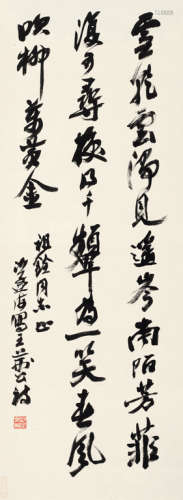 雪乾雲淨見遥岑南陌芳菲
復可尋換得千顰為一笑春風
吹柳萬黄金
祖銓同志正
沙孟海寫王荊公詩